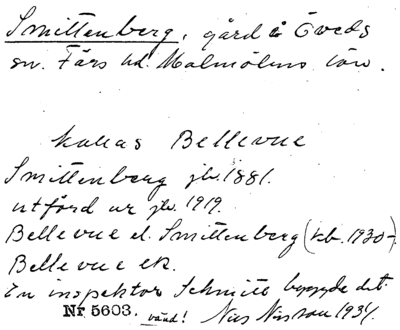 Smittenberg, gård i Öveds
sn. Färs hd. Malmöhus län.
kallas Bellevue
Smittenberg jb. 1881.
utförd ur jb. 1919.
Bellevue el. Smittenberg (kb. 1930-
Bellevue ek.
En inspektor Schmitt byggde det.
Nr 5603. vänd! Nils Nilsson 1934.